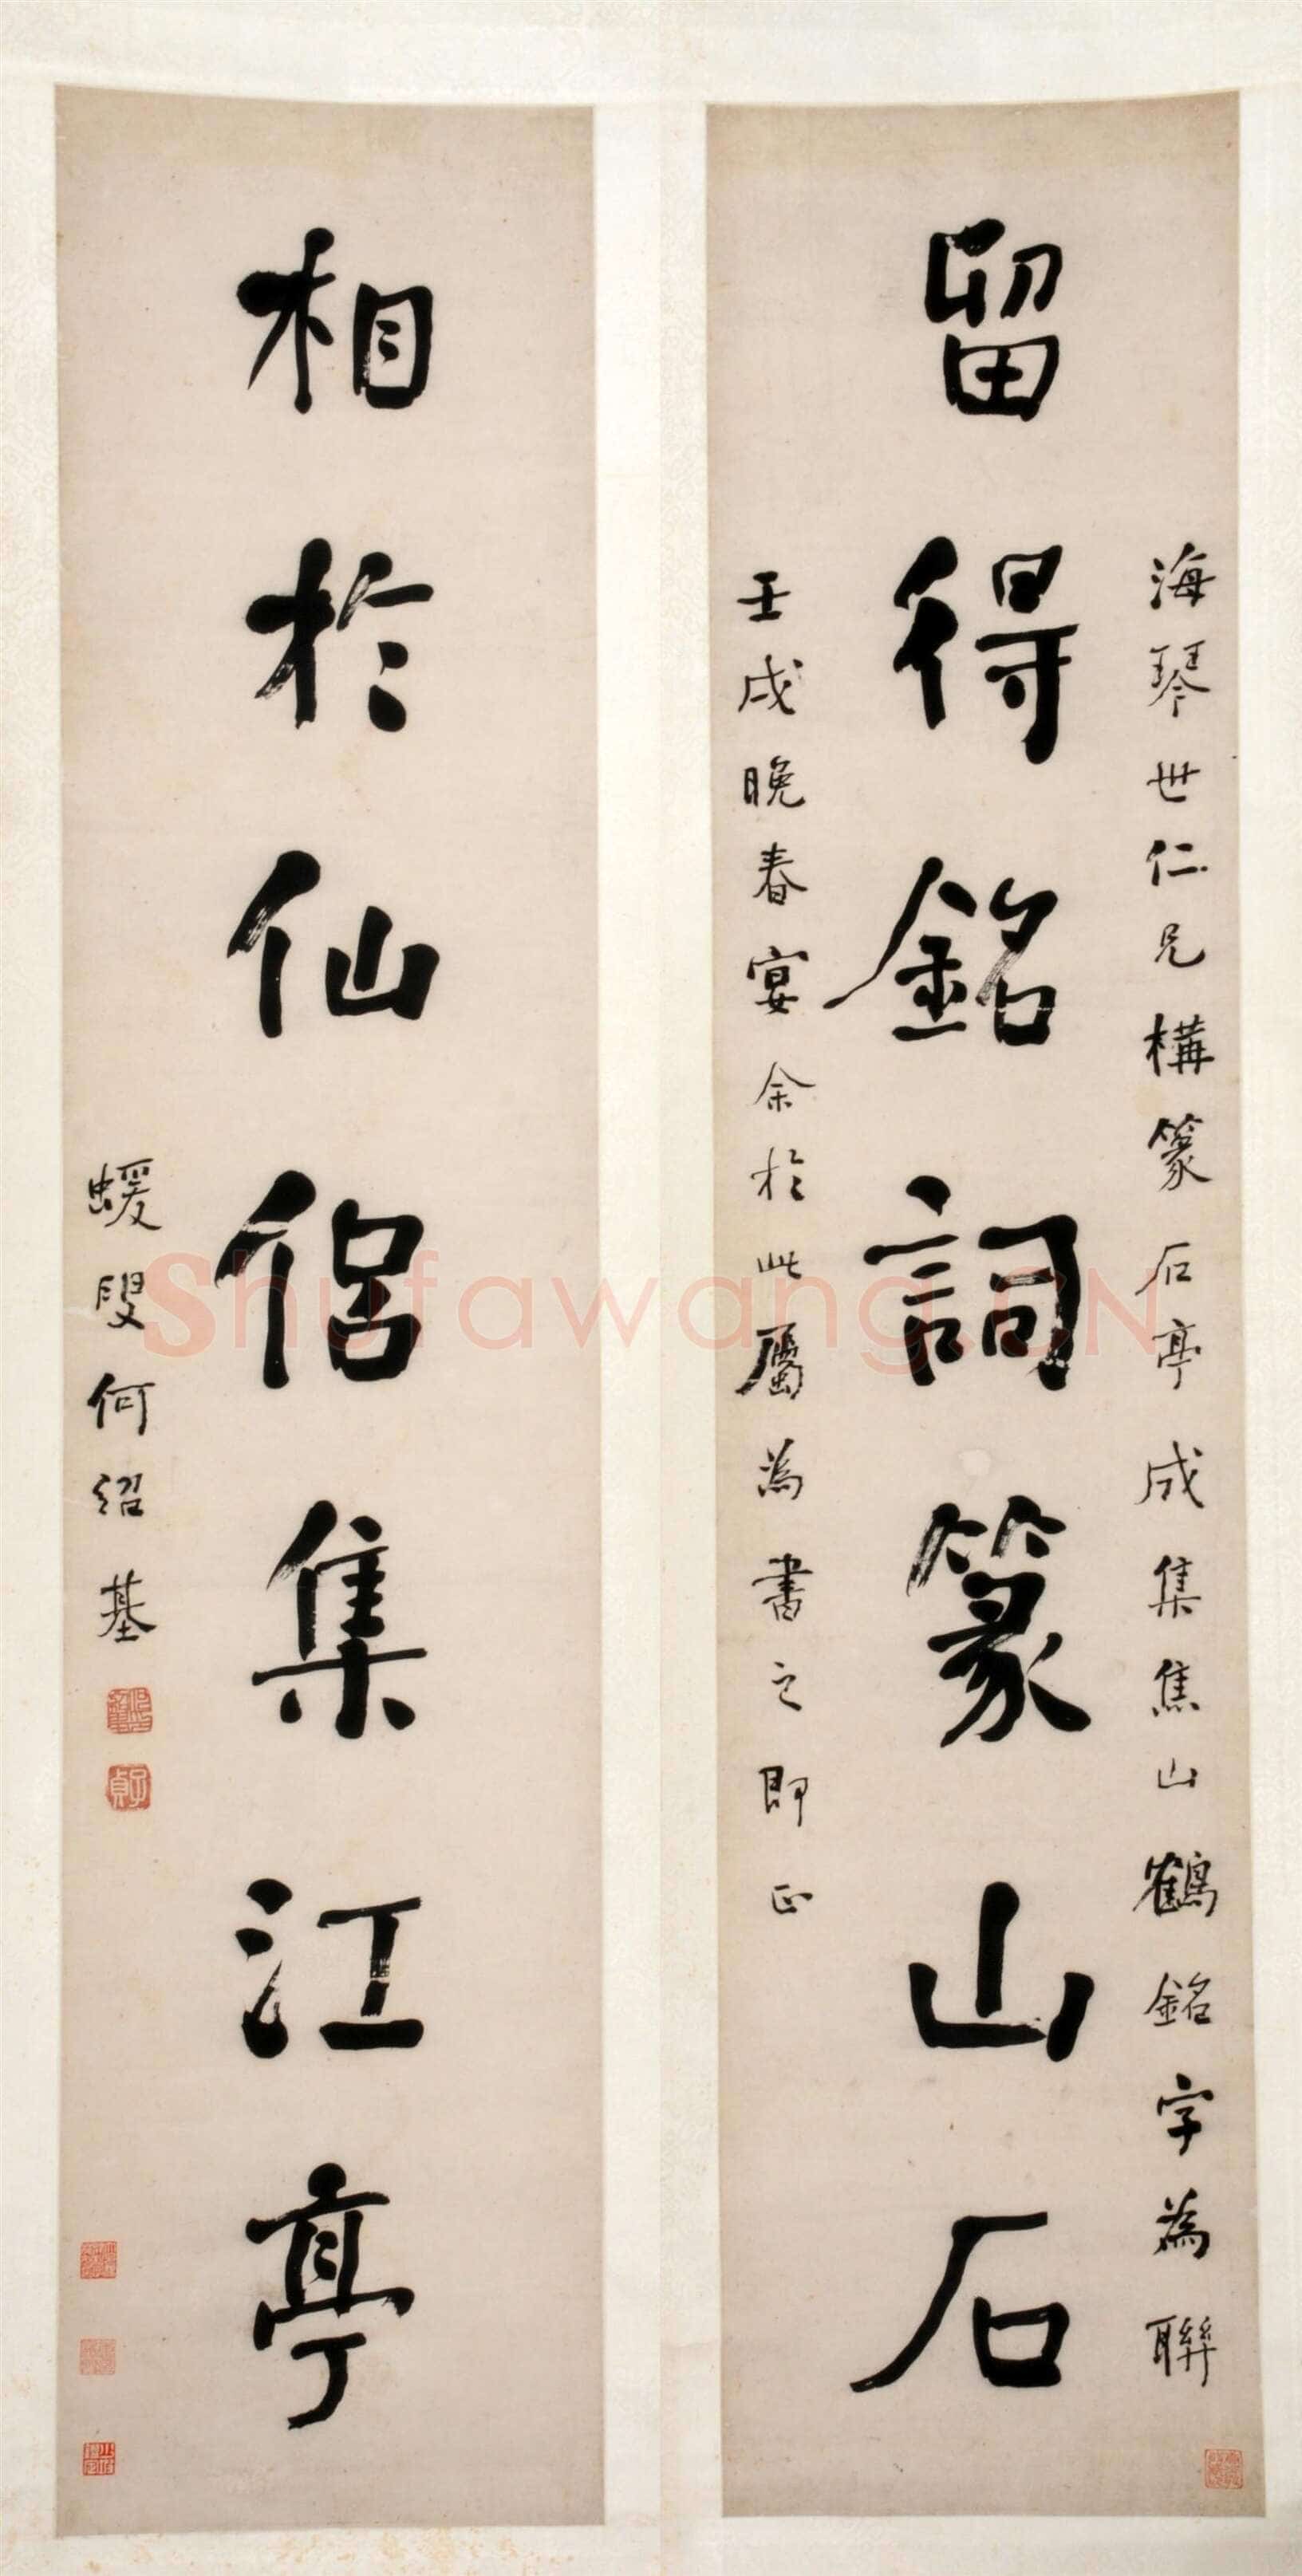 海琴世仁兄構篆石亭成集焦山鶴銘字為聯
留得銘詞篆山石
壬戌晚春宴余於此屬為書之即正
相於仙侶集江亭
蝯叟何紹基
子貞
Shufawang.CN